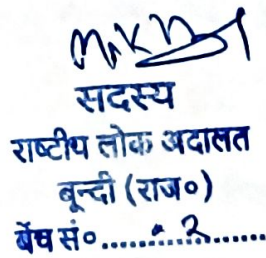 सदस्य
राष्टीय लोक अदालत
बून्दी (राज०)
बेंच सं०.......2.......